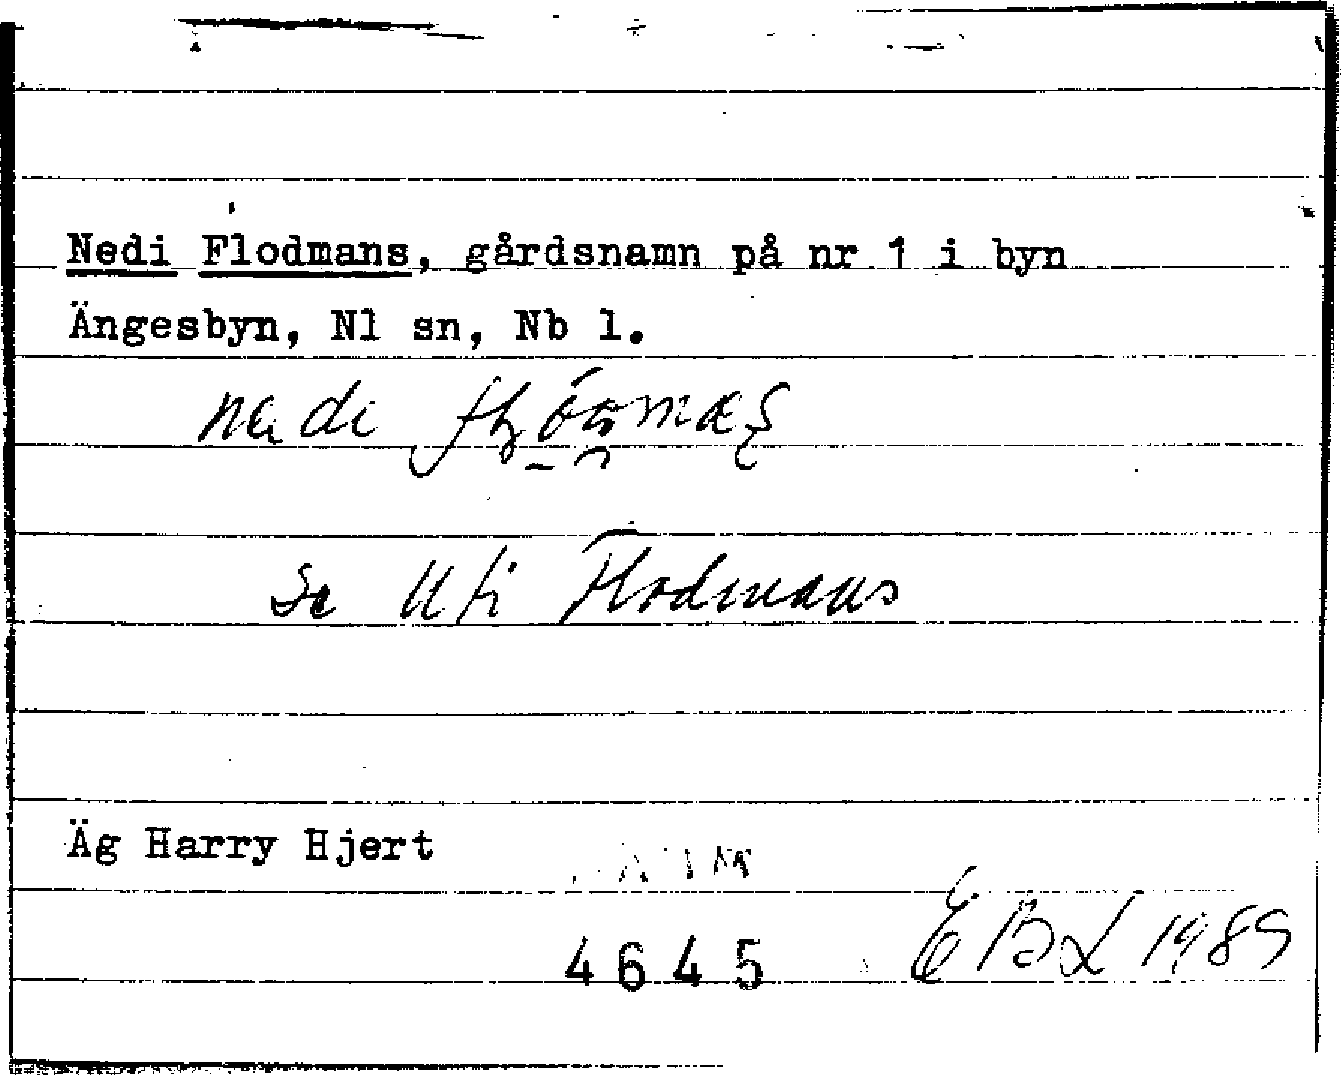 Nedi Flodmans, gårdsnamn på nr 1 i byn
Ängesbyn, Nl sn, Nb l.
Se Uti Flodmans
Äg Harry Hjert
4645
EBL 1989